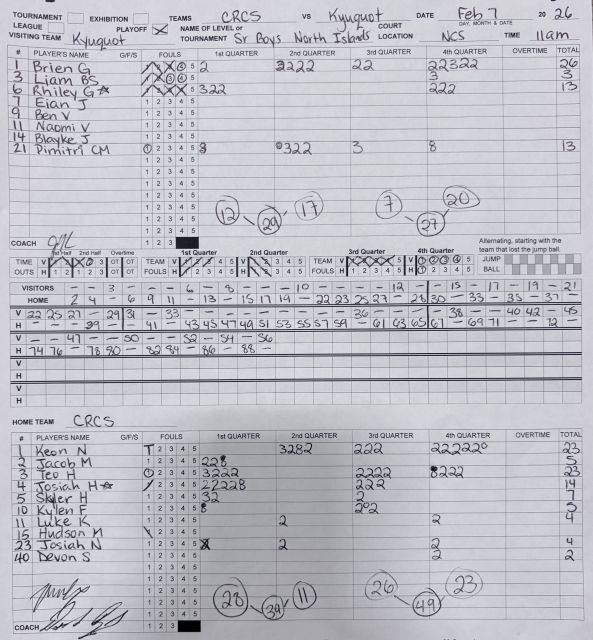 TOURNAMENT EXHIBITION TEAMS CRCS VS Kyuquot DATE Feb 7 20 26
DAY, MONTH & DATE
LEAGUE PLAYOFF X NAME OF LEVEL or COURT
VISITING TEAM Kyuquot TOURNAMENT Sr Boys North Islands LOCATION NCS TIME 11am
# PLAYER'S NAME G/F/S FOULS 1st QUARTER 2nd QUARTER 3rd QUARTER 4th QUARTER OVERTIME TOTAL
1 Brien G 5 2 2222 22 22322 26
3 Liam BS 5 3 3
6 Rhiley G☆ 5 322 222 13
7 Eian J 1 2 3 4 5
9 Ben V 1 2 3 4 5
11 Naomi V 1 2 3 4 5
14 Blayke J 1 2 3 4 5
21 Dimitri CM 1 2 3 4 5 322 3 13
1 2 3 4 5
1 2 3 4 5
1 2 3 4 5
1 2 3 4 5
1 2 3 4 5
1 2 3 4 5
12 29 17 7 27 20
COACH 1 2 3
Alternating, starting with the
team that lost the jump ball.
1st Half 2nd Half Overtime 1st Quarter 2nd Quarter 3rd Quarter 4th Quarter
TIME V OT OT TEAM V TEAM V V 1 2 3 4 5 JUMP
OUTS H 1 2 3 OT OT FOULS H FOULS H H 1 2 3 4 5 BALL
VISITORS - - 3 - - - 6 - 8 - - - 10 - - - - 12 - - 15 - 17 - 19 - 21
HOME 2 4 - 6 9 11 - 13 - 15 17 19 - 22 23 25 27 - 28 30 - 33 - 35 - 37 -
V 22 25 27 - 29 31 - 33 - - - - - - - 36 - - - - 38 - - 40 42 - 45
H - - - 39 - - 41 - 43 45 47 49 51 53 55 57 59 - 61 63 65 67 - 69 71 - 72 -
V - - 47 - - 50 - - 52 - 54 - 56
H 74 76 - 78 80 - 82 84 - 86 - 88 -
V
H
V
H
HOME TEAM CRCS
# PLAYER'S NAME G/F/S FOULS 1st QUARTER 2nd QUARTER 3rd QUARTER 4th QUARTER OVERTIME TOTAL
1 Keon N T 2 3 4 5 3282 222 23
2 Jacob M 1 2 3 4 5 5
3 Teo H 1 2 3 4 5 3222 2222 23
4 Josiah H☆ 2 3 4 5 22228 222 14
5 Skyler H 1 2 3 4 5 32 2 7
10 Kylen F 1 2 3 4 5 5
11 Luke K 1 2 3 4 5 2 2 4
15 Hudson M 2 3 4 5
23 Josiah N 1 2 3 4 5 2 2 4
40 Devon S 1 2 3 4 5 2 2
1 2 3 4 5
1 2 3 4 5
1 2 3 4 5
1 2 3 4 5
28 39 11 26 49 23
COACH 1 2 3